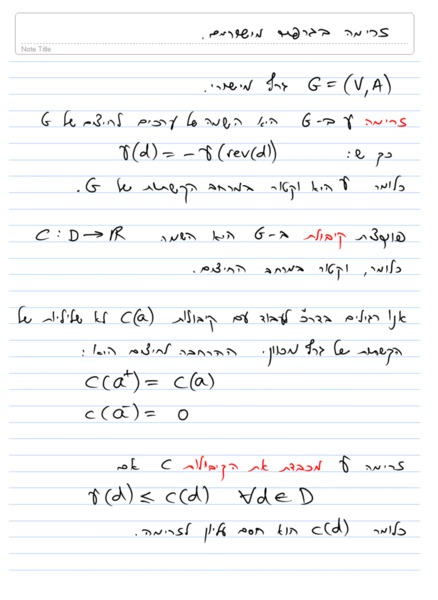 זרימה בגרפים מישוריים.
Note Title
G = (V, A) גרף מישורי.
זרימה γ ב-G היא השמה של ערכים לחיצים של G
כך ש: γ(d) = -γ(rev(d))
כלומר γ היא וקטור במרחב הקשתות של G.
פונקצית קיבולת ב-G היא השמה C : D → ℝ
כלומר, וקטור במרחב החיצים.
אנו רגילים בדר"כ לעבוד עם קיבולות C(a) לא שליליות של
הקשתות של גרף מכוון. ההרחבה לחיצים היא:
C(a⁺) = C(a)
C(a⁻) = 0
זרימה γ מכבדת את הקיבולות C אם
γ(d) ≤ C(d) ∀d ∈ D
כלומר C(d) הוא חסם עליון לזרימה.